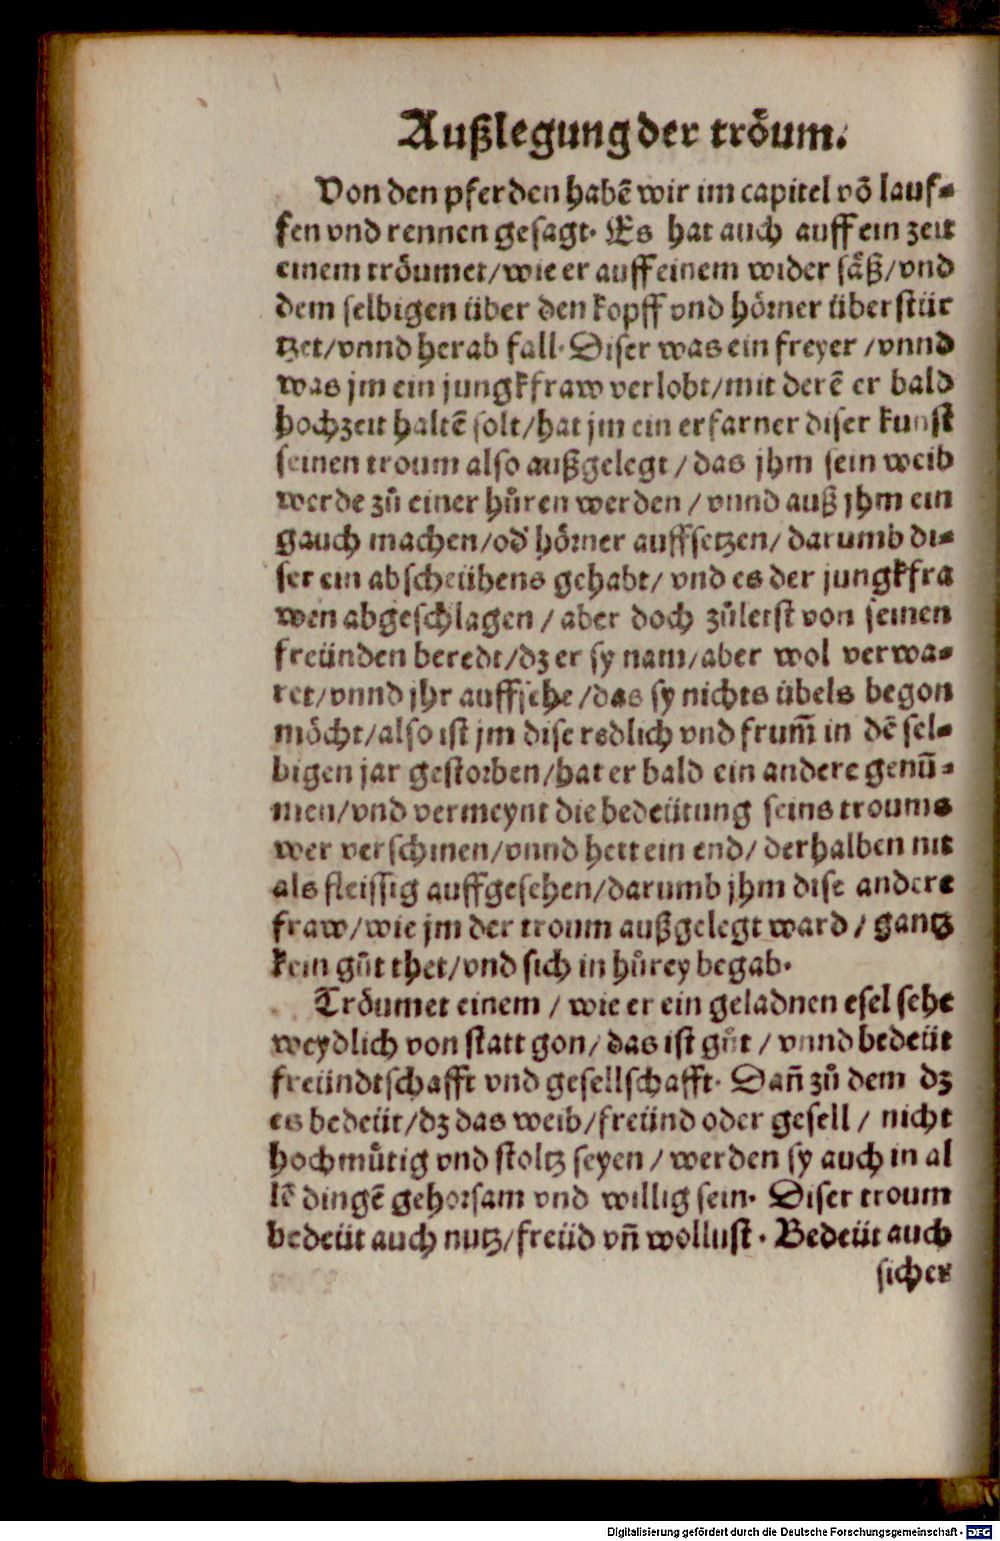 Außlegung der tröum.
Von den pferden habē wir im capitel võ lauf-
fen vnd rennen gesagt. Es hat auch auff ein zeit
einem tröumet/wie er auff einem wider säß/vnd
dem selbigen über den kopff vnd hörner überstür
tzet/vnnd herab fall. Diser was ein freyer /vnnd
was jm ein jungkfraw verlobt/mit derē er bald
hochzeit haltē solt/hat jm ein erfarner diser kunst
seinen troum also außgelegt /das jhm sein weib
werde zů einer hůren werden /vnnd auß jhm ein
gauch machen/od' hörner auffsetzen/ darumb di-
ser ein abscheühens gehabt/ vnd es der jungkfra
wen abgeschlagen /aber doch zůletst von seinen
freünden beredt/dz er sy nam/aber wol verwa-
ret/vnnd jhr auffsehe/das sy nichts übels begon
möcht/also ist jm dise redlich vnd frum̄ in dē sel-
bigen jar gestorben/hat er bald ein andere genū-
men/vnd vermeynt die bedeütung seins troums
wer verschinen/vnnd hett ein end/ derhalben nit
als fleissig auffgesehen/darumb jhm dise andere
fraw/wie jm der troum außgelegt ward/ gantz
kein gůt thet/vnd sich in hůrey begab.
Tröumet einem /wie er ein geladnen esel sehe
weydlich von statt gon/das ist gůt /vnnd bedeüt
freündtschafft vnd gesellschafft. Dan̄ zů dem dz
es bedeüt/dz das weib/freünd oder gesell / nicht
hochmůtig vnd stoltz seyen /werden sy auch in al
lē dingē gehorsam vnd willig sein. Diser troum
bedeüt auch nutz/freüd vn̄ wollust. Bedeüt auch
sicher
Digitalisierung gefördert durch die Deutsche Forschungsgemeinschaft - DFG